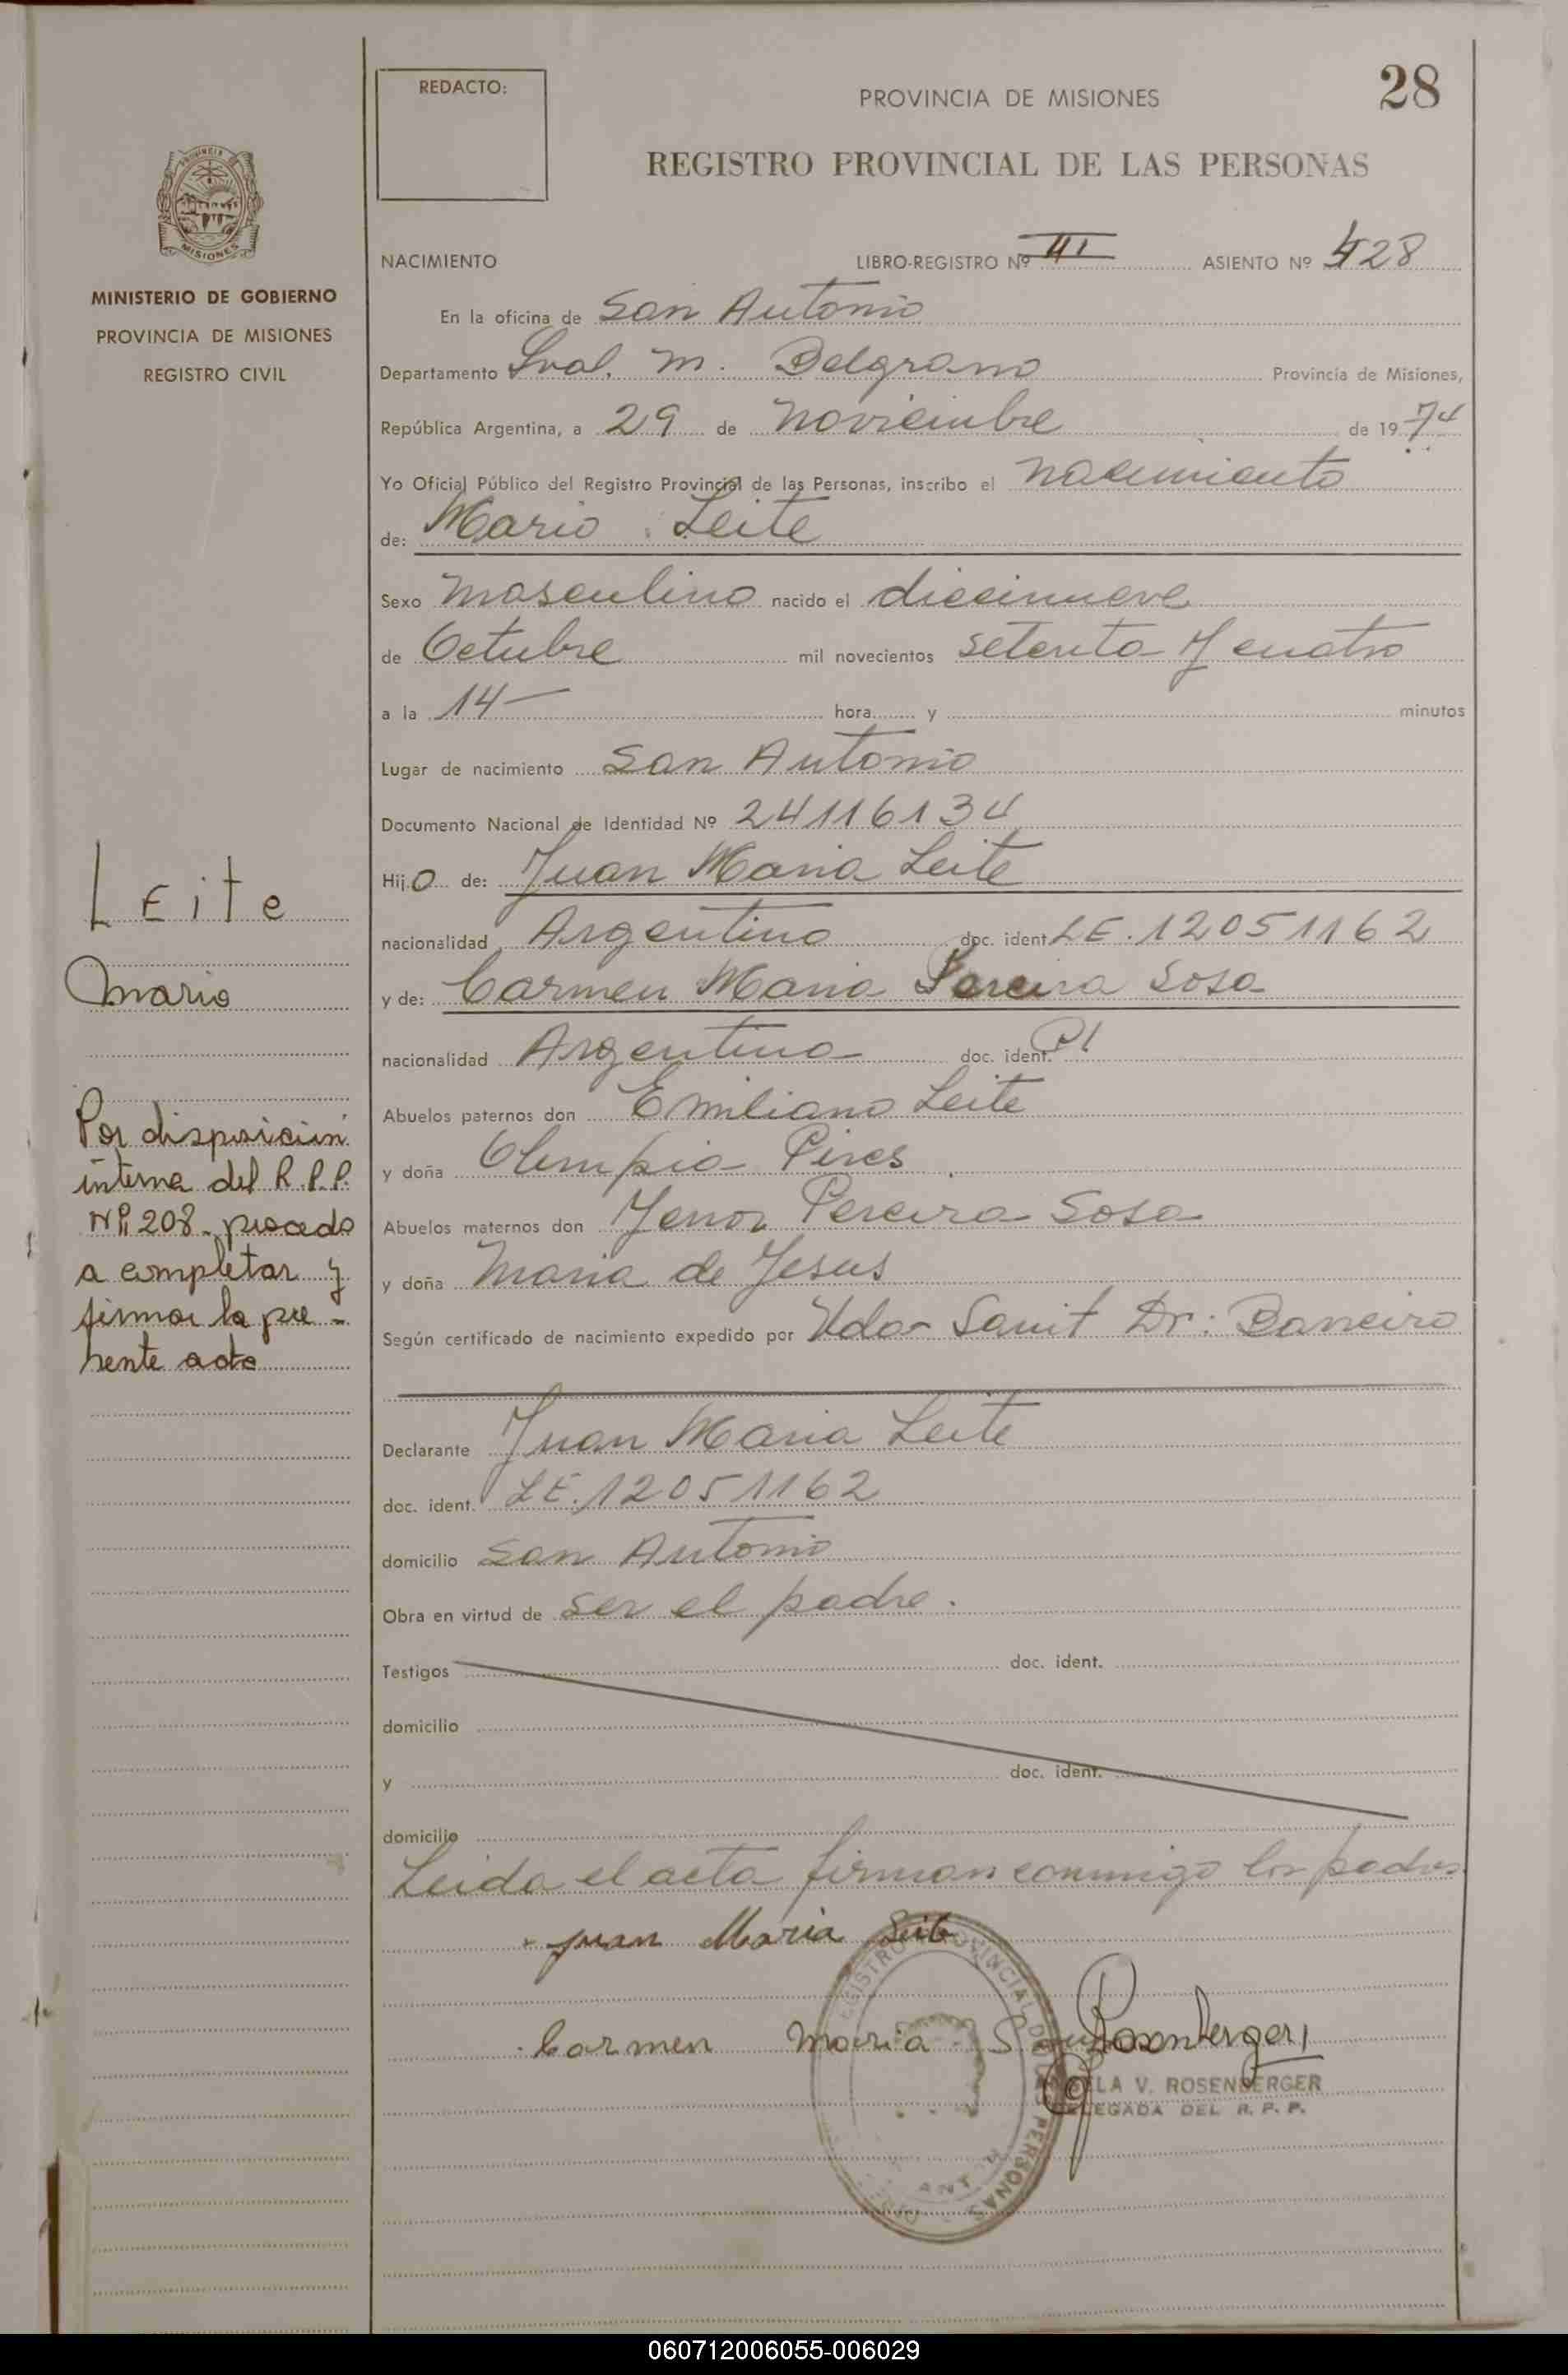 REDACTO:
PROVINCIA DE MISIONES
28
REGISTRO PROVINCIAL DE LAS PERSONAS
PROVINCIA DE
MISIONES
MINISTERIO DE GOBIERNO
PROVINCIA DE MISIONES
REGISTRO CIVIL
NACIMIENTO LIBRO-REGISTRO Nº III ASIENTO Nº 428
En la oficina de San Antonio
Departamento Gral. M. Belgrano Provincia de Misiones,
República Argentina, a 29 de Noviembre de 1974
Yo Oficial Público del Registro Provincial de las Personas, inscribo el nacimiento
de: Mario Leite
Sexo masculino nacido el diecinueve
de Octubre mil novecientos setenta y cuatro
a la 14 — hora y minutos
Lugar de nacimiento San Antonio
Documento Nacional de Identidad Nº 24116134
Hijo de: Juan Maria Leite
nacionalidad Argentino doc. ident. LE. 12051162
y de: Carmen Maria Pereira Sosa
nacionalidad Argentina doc. ident.
Abuelos paternos don Emiliano Leite
y doña Olempia Pires
Abuelos maternos don Pereira Sosa
y doña Maria de Jesus
Según certificado de nacimiento expedido por Sanit Dr:
Declarante Juan Maria Leite
doc. ident. LE. 12051162
domicilio San Antonio
Obra en virtud de ser el padre.
Testigos doc. ident.
domicilio
y doc. ident.
domicilio
Leida el acta firman conmigo los padres
Juan Maria Leite
Carmen Maria Rosenberger
ELA V. ROSENBERGER
DELEGADA DEL R. P. P.
REGISTRO PROVINCIAL DE LAS PERSONAS
LEite
Mario
Por disposición
interna del R.P.P.
Nº 208 - procedo
a completar y
firmar la pre-
sente acta
060712006055-006029